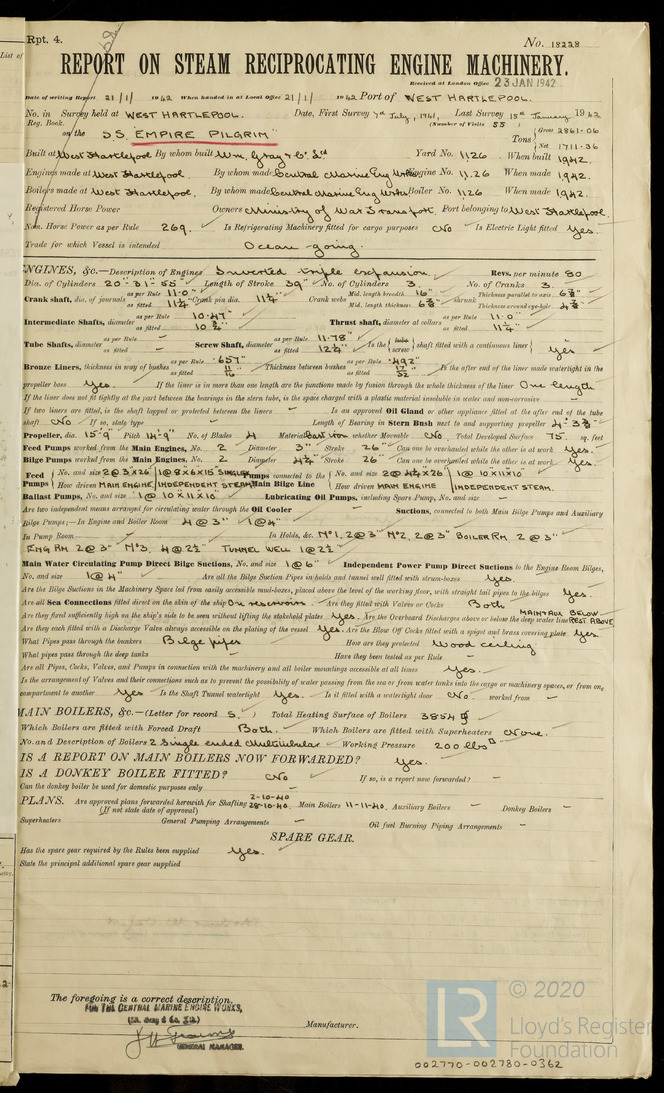 Rpt. 4.
No. 18228
REPORT ON STEAM RECIPROCATING ENGINE MACHINERY.
Received at London Office 23 JAN 1942
Date of writing Report 21/1/1942 When handed in at Local Office 21/1/1942 Port of WEST HARTLEPOOL.
No. in Survey held at WEST HARTLEPOOL. Date, First Survey 7th July, 1941, Last Survey 15th January 1942
Reg. Book. (Number of Visits 55)
on the S.S. "EMPIRE PILGRIM" Tons { Gross 2861.06
Net 1711.36
Built at West Hartlepool By whom built Wm. Gray & Co. Ltd Yard No. 1126 When built 1942.
Engines made at West Hartlepool. By whom made Central Marine Eng Works Engine No. 1126 When made 1942.
Boilers made at West Hartlepool. By whom made Central Marine Eng Works Boiler No. 1126 When made 1942.
Registered Horse Power Owners Ministry of War Transport. Port belonging to West Hartlepool.
Nom. Horse Power as per Rule 269. Is Refrigerating Machinery fitted for cargo purposes No Is Electric Light fitted Yes.
Trade for which Vessel is intended Ocean-going.
ENGINES, &c.—Description of Engines Inverted triple expansion. Revs. per minute 80
Dia. of Cylinders 20"-31"-55" Length of Stroke 39" No. of Cylinders 3. No. of Cranks 3.
Crank shaft, dia. of journals as per Rule 11.0" as fitted 11¼" Crank pin dia. 11¼" Crank webs Mid. length breadth 16" Mid. length thickness 6⅞" shrunk Thickness parallel to axis 6⅞" Thickness around eye-hole
Intermediate Shafts, diameter as per Rule 10.47" as fitted 10¾" Thrust shaft, diameter at collars as per Rule 11.0" as fitted 11¼"
Tube Shafts, diameter as per Rule - as fitted - Screw Shaft, diameter as per Rule 11.78" as fitted 12¼" Is the { tube screw } shaft fitted with a continuous liner { Yes
Bronze Liners, thickness in way of bushes as per Rule .657" as fitted 11/16" Thickness between bushes as per Rule .492" as fitted 17/32" Is the after end of the liner made watertight in the
propeller boss Yes. If the liner is in more than one length are the junctions made by fusion through the whole thickness of the liner One length
If the liner does not fit tightly at the part between the bearings in the stern tube, is the space charged with a plastic material insoluble in water and non-corrosive -
If two liners are fitted, is the shaft lapped or protected between the liners - Is an approved Oil Gland or other appliance fitted at the after end of the tube
shaft No If so, state type - Length of Bearing in Stern Bush next to and supporting propeller
Propeller, dia. 15'-9" Pitch 14'-9" No. of Blades 4 Material Cast iron whether Moveable No. Total Developed Surface 75. sq. feet
Feed Pumps worked from the Main Engines, No. 2 Diameter 3" Stroke 26" Can one be overhauled while the other is at work Yes.
Bilge Pumps worked from the Main Engines, No. 2 Diameter 4¼" Stroke 26" Can one be overhauled while the other is at work Yes.
Feed Pumps { No. and size 2@3"x26" 1@8"x6"x15" SIMPLEX Pumps connected to the Main Bilge Line { No. and size 2@4¼"x26" 1@10"x11"x10"
How driven MAIN ENGINE INDEPENDENT STEAM How driven MAIN ENGINE INDEPENDENT STEAM.
Ballast Pumps, No. and size 1@10"x11"x10" Lubricating Oil Pumps, including Spare Pump, No. and size -
Are two independent means arranged for circulating water through the Oil Cooler - Suctions, connected to both Main Bilge Pumps and Auxiliary
Bilge Pumps;—In Engine and Boiler Room 4@3" 1@4"
In Pump Room - In Holds, &c. No1, 2@3" No2, 2@3" BOILER RM. 2@3"
ENG RM. 2@3" No3, 4@2½" TUNNEL WELL 1@2½"
Main Water Circulating Pump Direct Bilge Suctions, No. and size 1@6" Independent Power Pump Direct Suctions to the Engine Room Bilges,
No. and size 1@4" Are all the Bilge Suction Pipes in holds and tunnel well fitted with strum-boxes Yes.
Are the Bilge Suctions in the Machinery Space led from easily accessible mud-boxes, placed above the level of the working floor, with straight tail pipes to the bilges Yes.
Are all Sea Connections fitted direct on the skin of the ship On reservoirs. Are they fitted with Valves or Cocks Both
Are they fixed sufficiently high on the ship's side to be seen without lifting the stokehold plates Yes. Are the Overboard Discharges above or below the deep water line MAIN & AUX BELOW REST ABOVE.
Are they each fitted with a Discharge Valve always accessible on the plating of the vessel Yes. Are the Blow Off Cocks fitted with a spigot and brass covering plate Yes.
What Pipes pass through the bunkers Bilge pipes How are they protected Wood ceiling
What pipes pass through the deep tanks - Have they been tested as per Rule -
Are all Pipes, Cocks, Valves, and Pumps in connection with the machinery and all boiler mountings accessible at all times Yes.
Is the arrangement of Valves and their connections such as to prevent the possibility of water passing from the sea or from water tanks into the cargo or machinery spaces, or from one
compartment to another Yes Is the Shaft Tunnel watertight Yes. Is it fitted with a watertight door No. worked from -
MAIN BOILERS, &c.—(Letter for record S.) Total Heating Surface of Boilers 3854
Which Boilers are fitted with Forced Draft Both. Which Boilers are fitted with Superheaters None.
No. and Description of Boilers 2 Single ended Multitubular Working Pressure 200 lbs
IS A REPORT ON MAIN BOILERS NOW FORWARDED? Yes.
IS A DONKEY BOILER FITTED? No If so, is a report now forwarded? -
Can the donkey boiler be used for domestic purposes only -
PLANS. Are approved plans forwarded herewith for Shafting 2-10-40 28-10-40. Main Boilers 11-11-40. Auxiliary Boilers - Donkey Boilers -
(If not state date of approval)
Superheaters General Pumping Arrangements - Oil fuel Burning Piping Arrangements -
SPARE GEAR.
Has the spare gear required by the Rules been supplied Yes.
State the principal additional spare gear supplied
The foregoing is a correct description,
FOR THE CENTRAL MARINE ENGINE WORKS,
(Wm. Gray & Co. Ltd.)
Manufacturer.
GENERAL MANAGER.
LR © 2020
Lloyd's Register
Foundation
002770-002780-0362